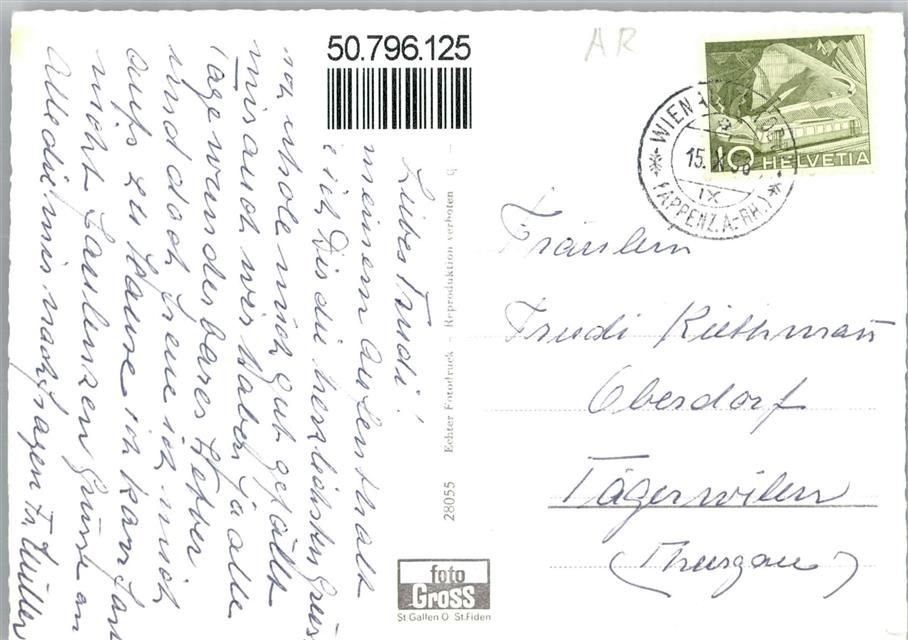 50.796.125
AR
10 HELVETIA
WIEN
15.
IX
(APPENZ.A.-RH.)
Liebes Trudi!
meinem Aufenthalt
ich Dir die herzlichsten Grüs
erhole mich gut gefällt
mir auch wir haben ja alle
Tage wunderbares Wetter
und doch freue ich mich
aufs zu Hause ich kann dan
nicht Grüsse an
Alle die mir nachfragen Fr. Müller
28055 Echter Fotodruck – Reproduktion verboten G –
foto
Gross
St Gallen O St.Fiden
Fräulein
Trudi
Oberdorf
Tägerwilen
(Thurgau)